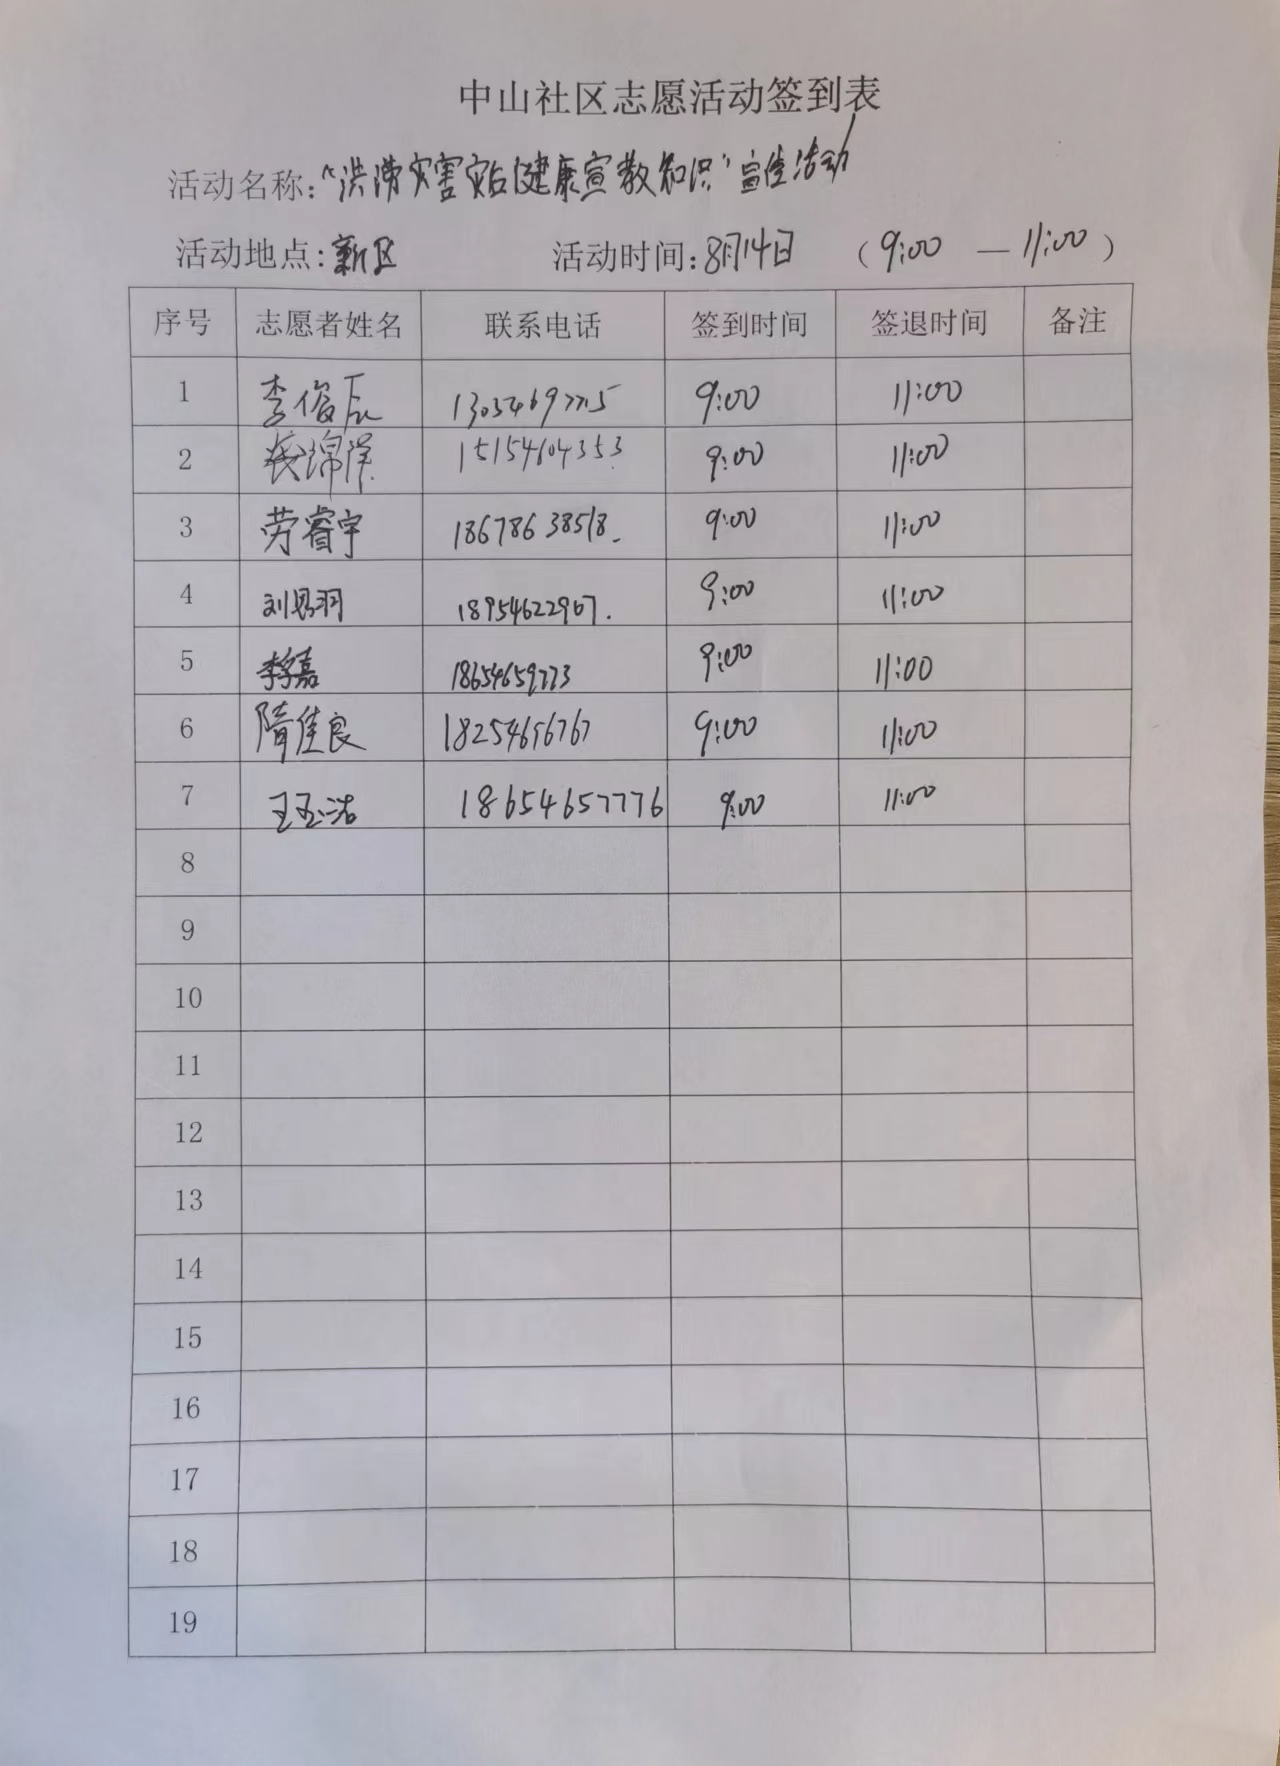 中山社区志愿活动签到表
活动名称:“洪涝灾害灾后健康宣教知识”宣传活动
活动地点:新区 活动时间:8月14日 (9:00 — 11:00)
序号 志愿者姓名 联系电话 签到时间 签退时间 备注
1 李俊辰 9:00 11:00
2 15154604353 9:00 11:00
3 劳睿宇 18678638518 9:00 11:00
4 刘思羽 18954622967 9:00 11:00
5 18654659773 9:00 11:00
6 隋佳良 9:00 11:00
7 王玉洁 18654657776 9:00 11:00
8
9
10
11
12
13
14
15
16
17
18
19